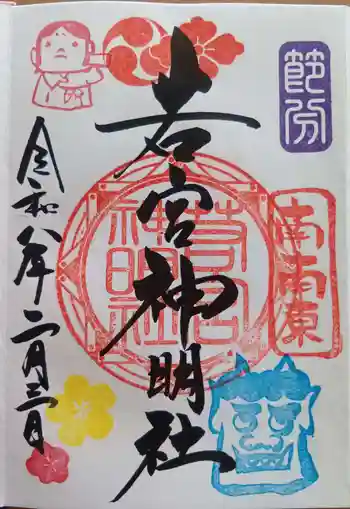 節分
若宮神明社
若宮
神明社
令和八年二月三日